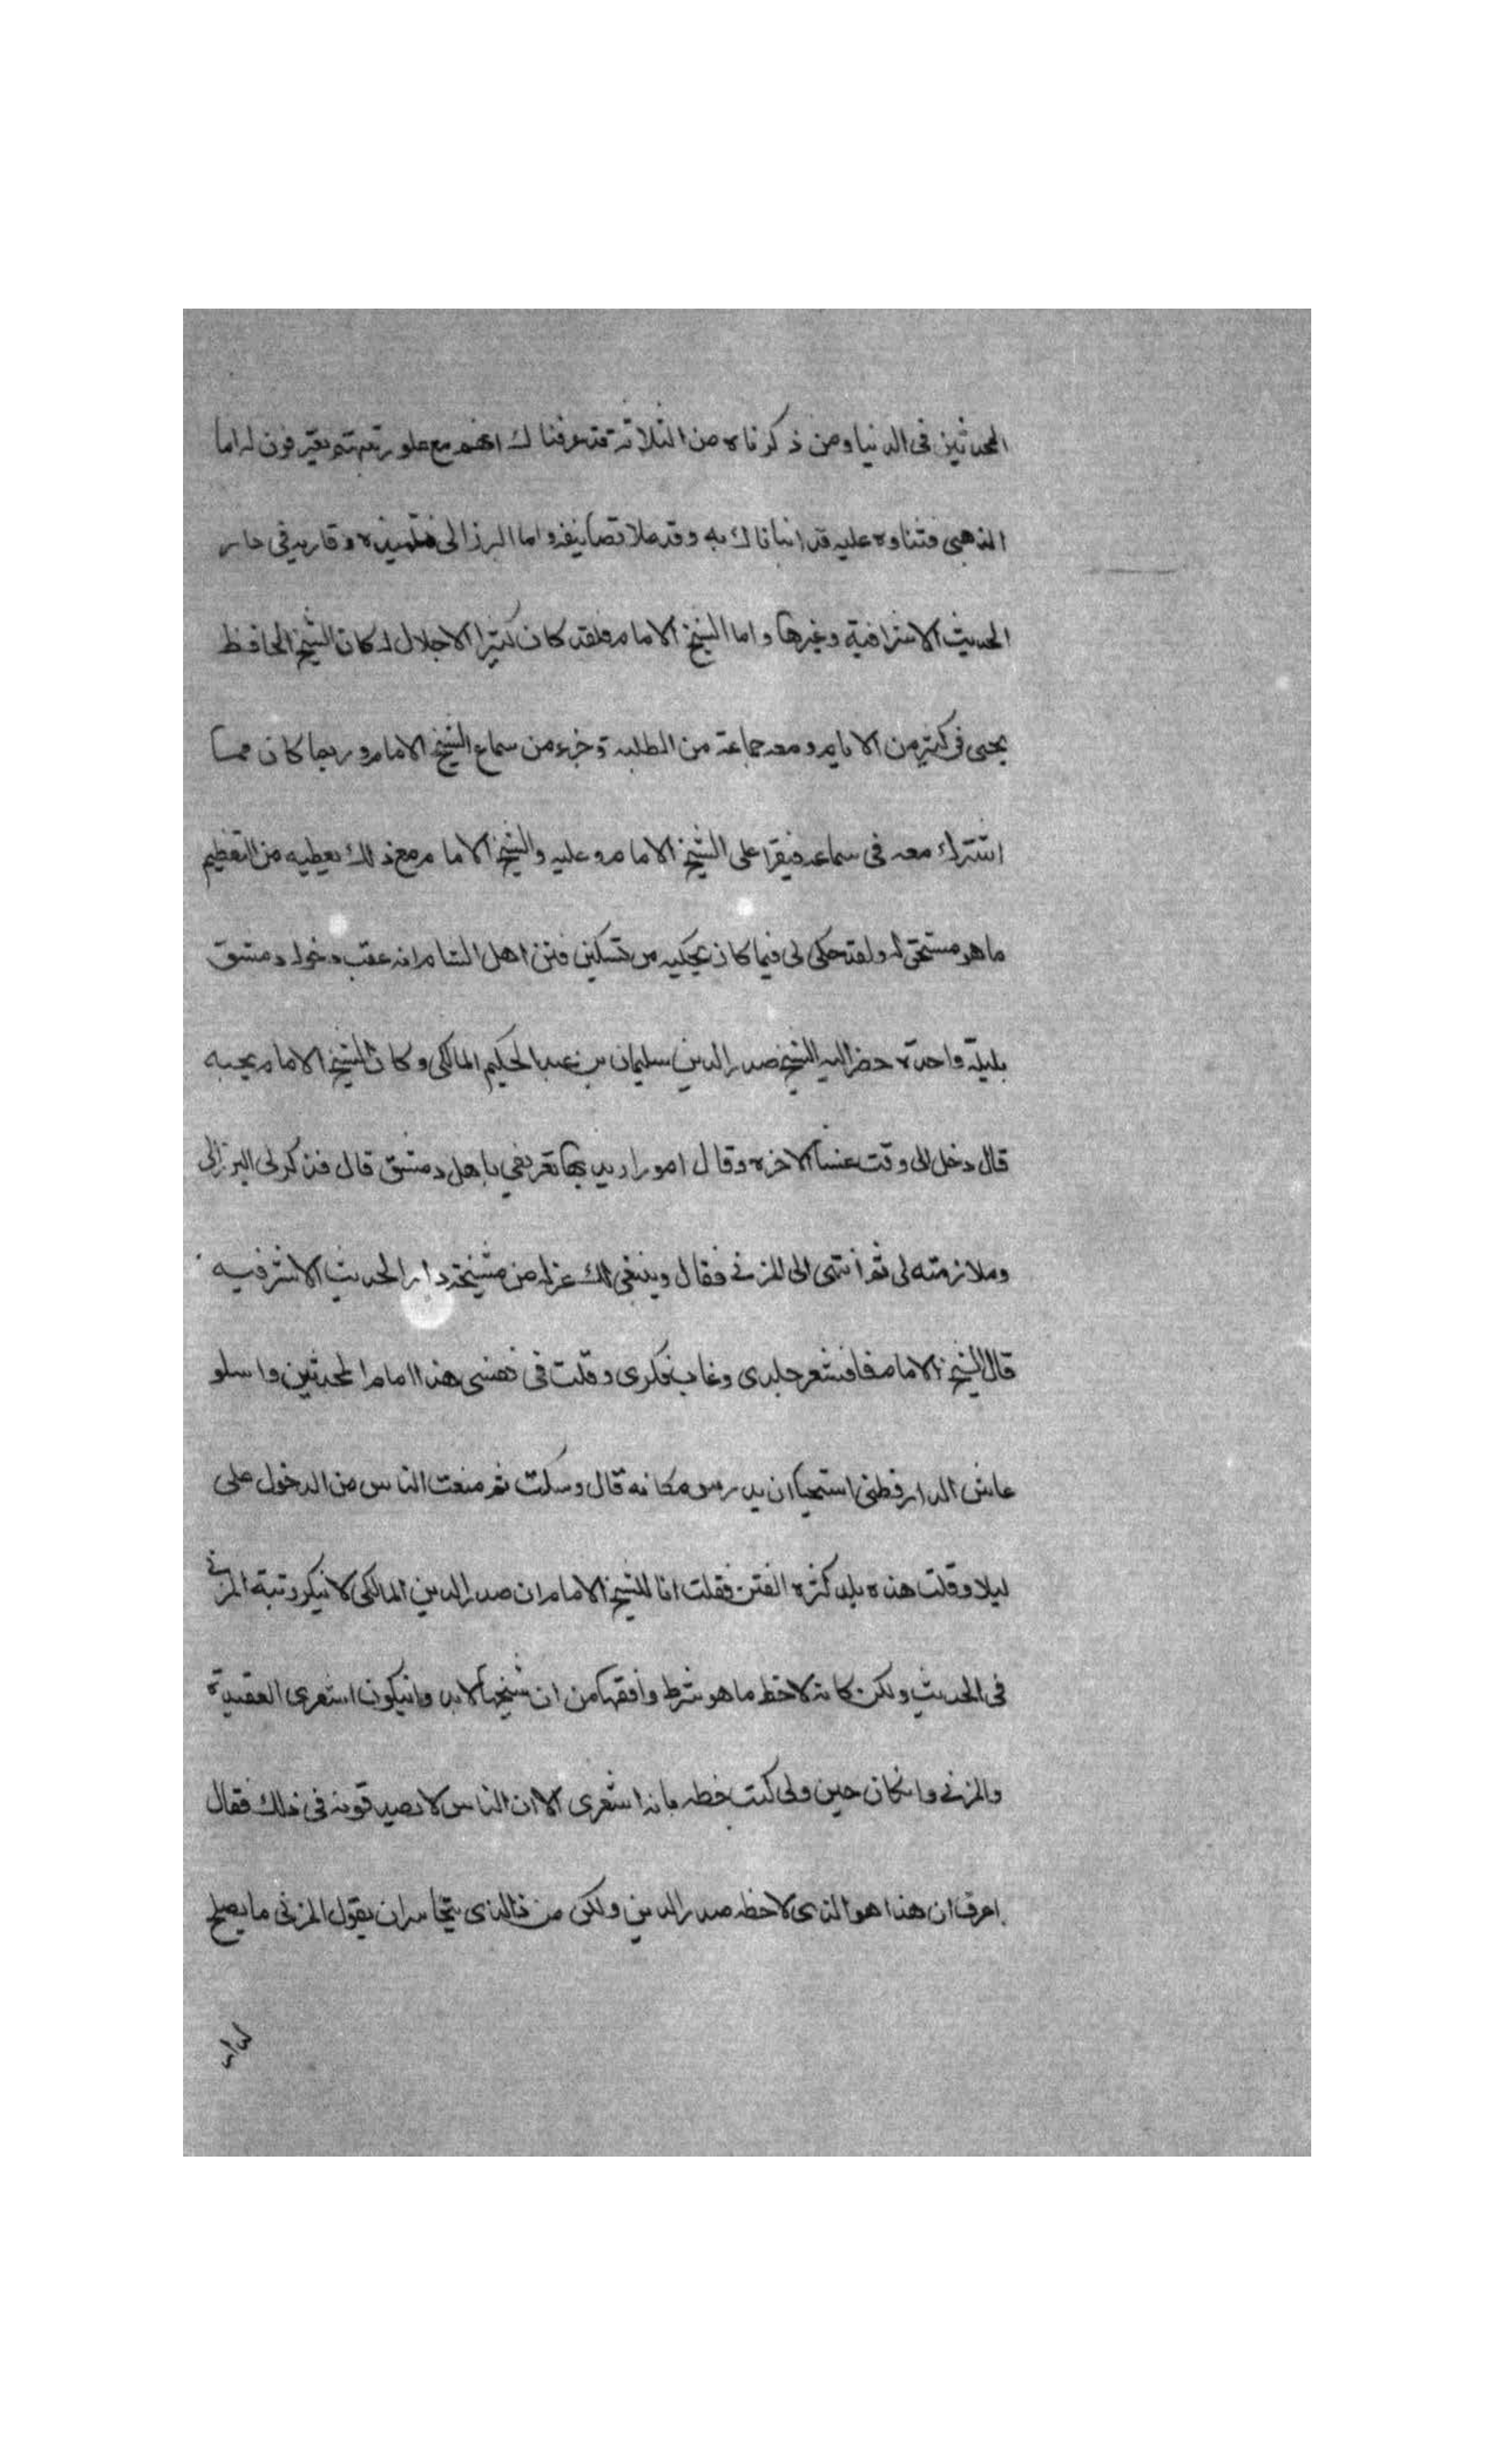 المحدثين في الدنيا ومن ذكرناه من الثلاثة قد عرفناك انهم مع علو رتبتهم يعترفون له اما
الذهبي فثناوه عليه قد انباناك به وقد ملا تصانيفه واما البرزالي فتلميذه وقاريه في دار
الحديث الاشرافية وغيرها واما الشيخ الامام فلقد كان كثير الاجلال له كان الشيخ الحافظ
يجي في كثير من الايام ومعه جماعة من الطلبة وجزء من سماع الشيخ الامام وربما كان مما
اشترك معه في سماعه فيقرا على الشيخ الامام وعليه والشيخ الامام مع ذلك يعطيه من التعظيم
ما هو مستحق له ولقد حكى لي فيما كان يحكيه من تسكين فتن اهل الشام انه عقب دخوله دمشق
بليلة واحدة حضر اليه الشيخ صدر الدين سليمان بن عبد الحكيم المالكي وكان الشيخ الامام يحبه
قال دخل الى وقت عشا الاخرة وقال امورا يريد بها تعريفي باهل دمشق قال فذكر لي البرزالي
وملازمته لي ثم انتهى الى المزني فقال وينبغي لك عزله من مشيخة دار الحديث الاشرفيه
قال الشيخ الامام فاقشعر جلدي وغاب فكري وقلت في نفسي هذا امام المحدثين والله لو
عاش الدارقطني استحيا ان يدرس مكانه قال وسكت ثم منعت الناس من الدخول علي
ليلا وقلت هذه بلد كثرة الفتن فقلت انا للشيخ الامام ان صدر الدين المالكي لا ينكر رتبة المزني
في الحديث ولكن كانه لاحظ ما هو شرط واقفها من ان شيخها لابد وان يكون اشعرى العقيدة
والمزني وان كان حين ولي كتب خطه بانه اشعرى الا ان الناس لا يصدقونه في ذلك فقال
اعرف ان هذا هو الذى لاحظه صدر الدين ولكن من ذا الذى يتجاسر ان يقول المزني ما يصلح